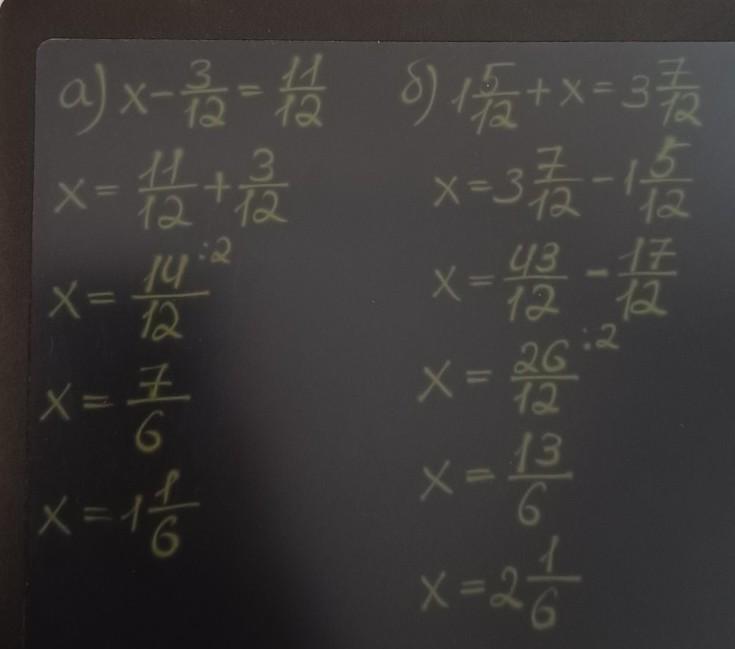 а) x - 3/12 = 11/12
x = 11/12 + 3/12
x = 14/12 :2
x = 7/6
x = 1 1/6
б) 1 5/12 + x = 3 7/12
x = 3 7/12 - 1 5/12
x = 43/12 - 17/12
x = 26/12 :2
x = 13/6
x = 2 1/6